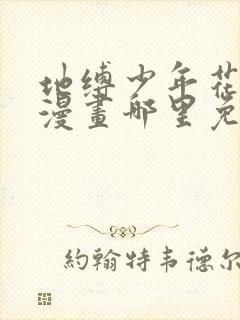 地缚少年花
漫畫哪里免
約翰特韦德尔